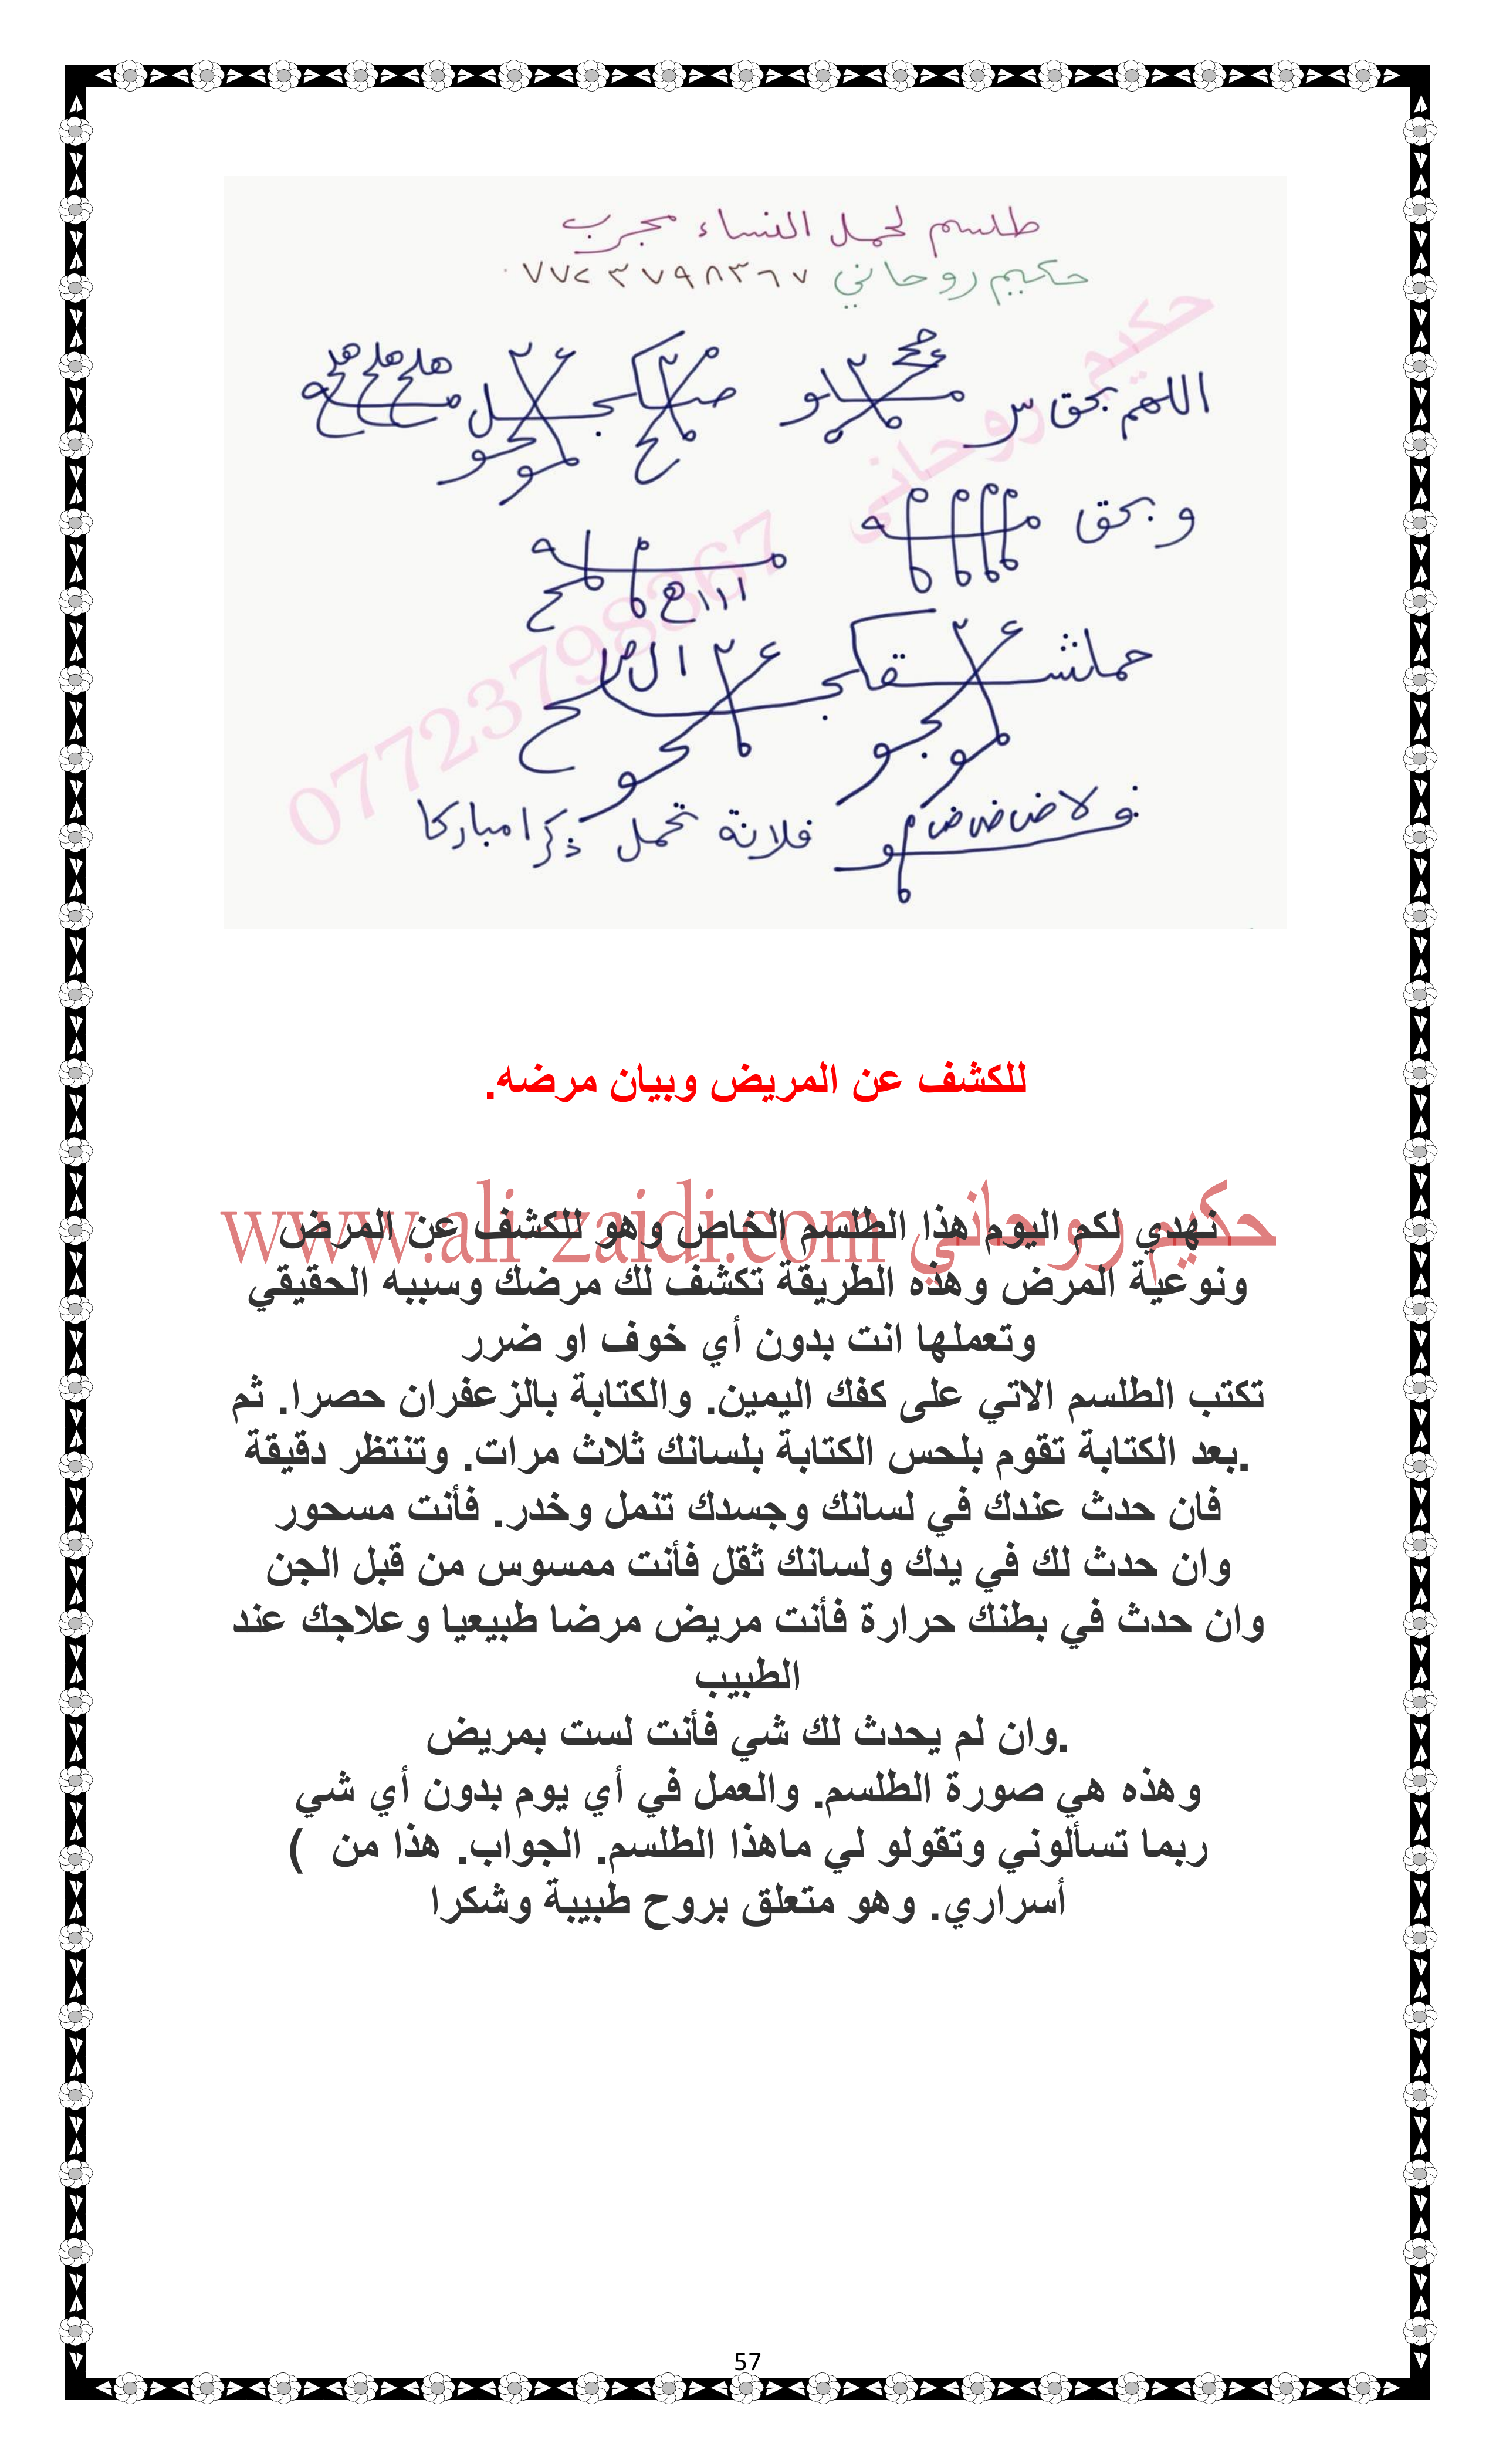 طلسم لحمل النساء مجرب
حكيم روحاني ٠٧٧٢٣٧٩٨٣٦٧
حكيم روحاني 07723798367
اللهم بحق س
و بحق
فلانة تحمل ذكرا مباركا
للكشف عن المريض وبيان مرضه.
حكيم روحاني www.ali-zaidi.com
نهدي لكم اليوم هذا الطلسم الخاص وهو للكشف عن المرض
ونوعية المرض وهذه الطريقة تكشف لك مرضك وسببه الحقيقي
وتعملها انت بدون أي خوف او ضرر
تكتب الطلسم الاتي على كفك اليمين. والكتابة بالزعفران حصرا. ثم
.بعد الكتابة تقوم بلحس الكتابة بلسانك ثلاث مرات. وتنتظر دقيقة
فان حدث عندك في لسانك وجسدك تنمل وخدر. فأنت مسحور
وان حدث لك في يدك ولسانك ثقل فأنت ممسوس من قبل الجن
وان حدث في بطنك حرارة فأنت مريض مرضا طبيعيا وعلاجك عند
الطبيب
.وان لم يحدث لك شي فأنت لست بمريض
وهذه هي صورة الطلسم. والعمل في أي يوم بدون أي شي
ربما تسألوني وتقولو لي ماهذا الطلسم. الجواب. هذا من (
أسراري. وهو متعلق بروح طبيبة وشكرا
57